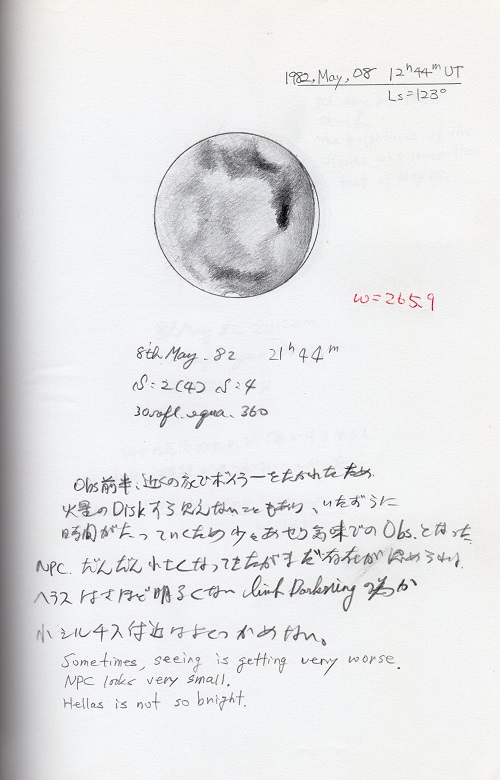 1982, May, 08 12ʰ44ᵐ UT
Ls=123°
ω=265.9
8th. May. 82 21ʰ44ᵐ
S:2(4) S:4
30 refl. equa. 360
Obs前半、近くの ボイラーをたかれたため
火星のDiskすら見えないこともあり、いたずらに
時間がたっていくため少々あせり気味でのObs.となった
NPC. だんだん小さくなってきたがまだ存在が認められる.
ヘラスはさほど明るくない limb Darkening の為か
小シルチス付近はよくつかめない。
Sometimes, seeing is getting very worse.
NPC looks very small.
Hellas is not so bright.